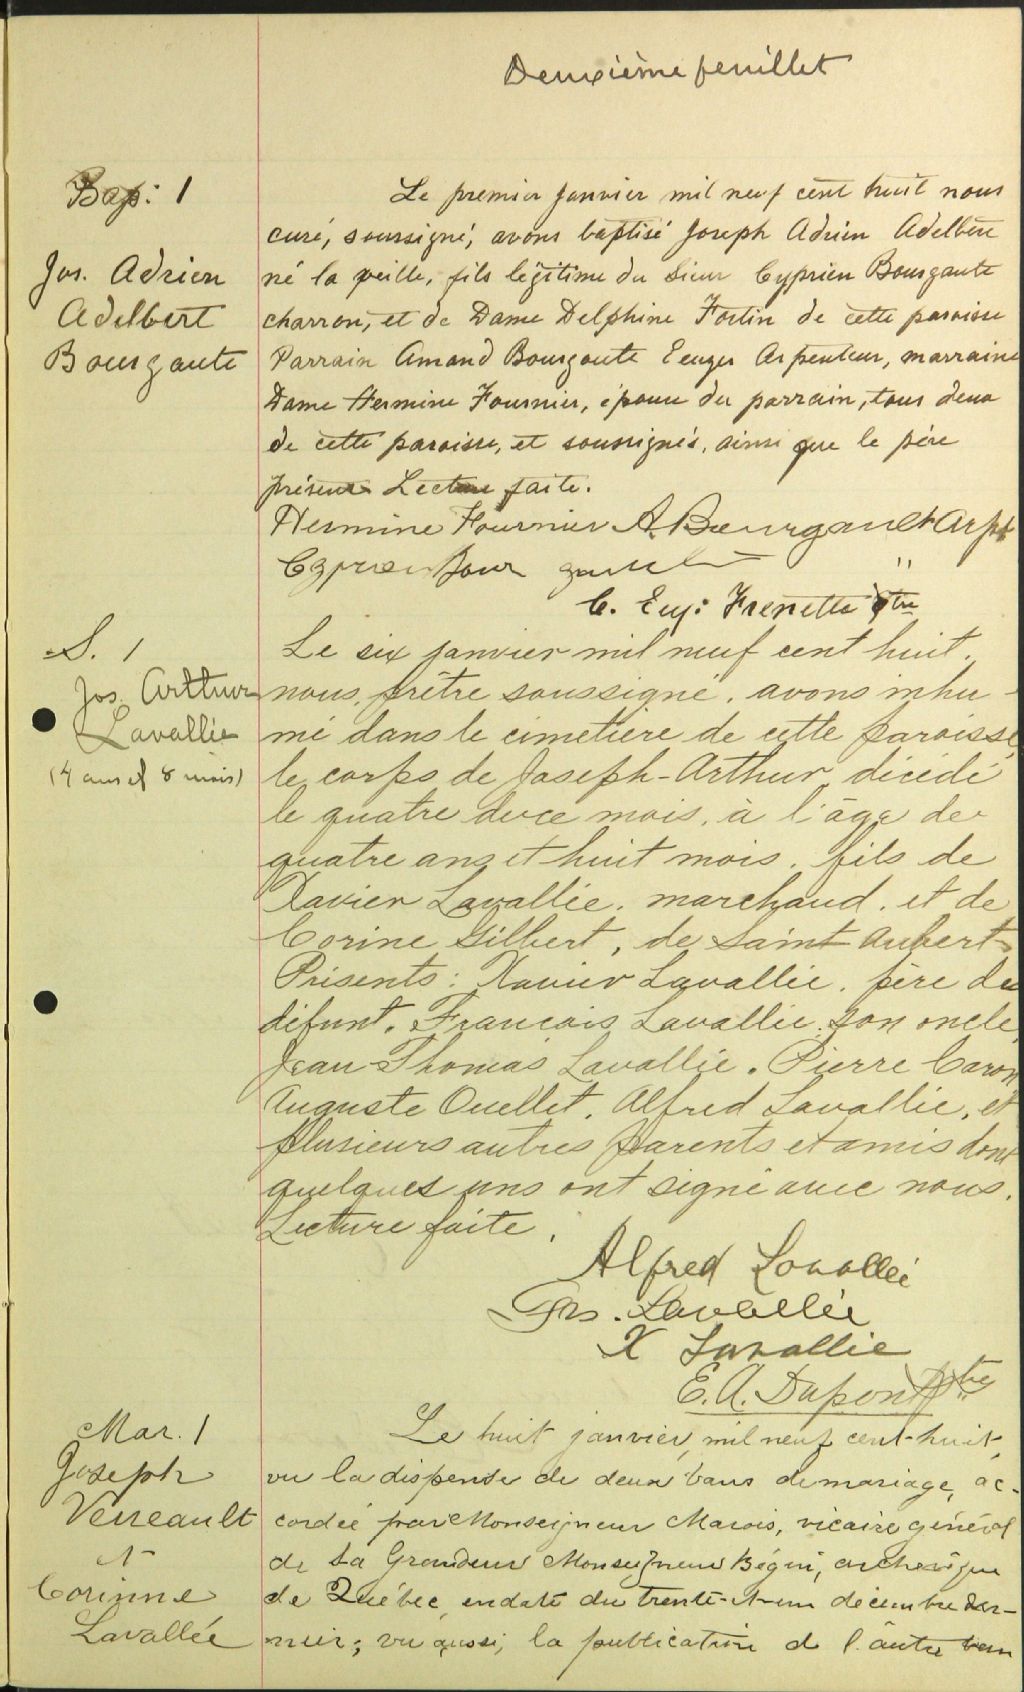 Deuxième feuillet
Bap: 1
Jos. Adrien
Adelbert
Bourgaute
Le premier janvier mil neuf cent huit nous
curé, soussigné, avons baptisé Joseph Adrien Adelbert
né la veille, fils légitime du Sieur Cyprien Bourgaute
charron, et de Dame Delphine Fortin de cette paroisse
Parrain Amand Bourgaute Ecuyer Arpenteur, marraine
Dame Hermine Fournier, épouse du parrain, tous deux
de cette paroisse, et soussignés, ainsi que le père
présent Lecture faite.
Hermine Fournier A. Bourgault Arpt
Cyprien Bourgault "
C. Eug: Frenette Ptre
S. 1
Jos. Arthur
Lavallée
(4 ans et 8 mois)
Le six janvier mil neuf cent huit.
nous, prêtre soussigné, avons inhu-
mé dans le cimetière de cette paroisse,
le corps de Joseph-Arthur, décédé
le quatre de ce mois, à l'âge de
quatre ans et huit mois, fils de
Xavier Lavallée, marchand, et de
Corine Gilbert, de Saint Aubert.
Présents: Xavier Lavallée, père du
défunt, François Lavallée, son oncle,
Jean-Thomas Lavallée, Pierre Caron,
Auguste Ouellet, Alfred Lavallée, et
plusieurs autres parents et amis dont
quelques uns ont signé avec nous.
Lecture faite.
Alfred Lavallée
Frs. Lavallée
X Lavallée
E. A. Dupont Ptre
Mar. 1
Joseph
Verreault
et
Corinne
Lavallée
Le huit janvier, mil neuf cent-huit,
vu la dispense de deux bans de mariage, ac-
cordée par Monseigneur Marois, vicaire général
de Sa Grandeur Monseigneur Bégin, archevêque
de Québec, en date du trente-et-un décembre der-
nier; vu aussi, la publication de l'autre ban